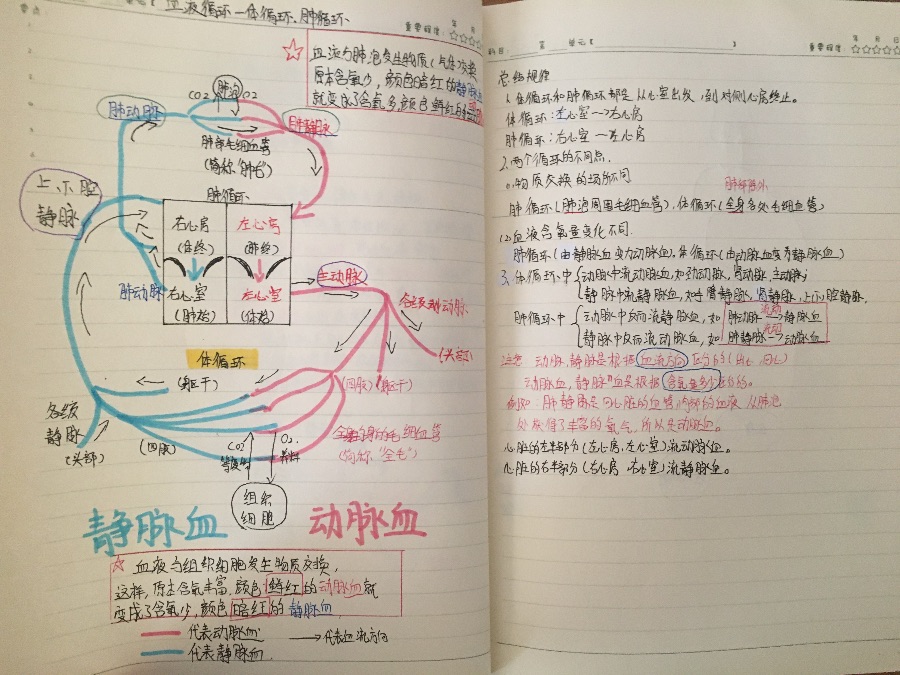 血液循环—体循环、肺循环
重要程度:
年 月
☆ 血液与肺泡发生物质(气体)交换
原本含氧少,颜色暗红的静脉血
就变成了含氧多颜色鲜红的
肺泡
CO2 O2
肺动脉
肺静脉
肺部毛细血管
(简称"肺毛")
上下腔
静脉
肺循环
右心房
(体终)
左心房
(肺终)
肺动脉
右心室
(肺始)
左心室
(体始)
主动脉
各级动脉
(头部)
体循环
(躯干)
(四肢)
(躯干)
各级
静脉
(头部)
(四肢)
全身的毛细血管
(简称"全毛")
CO2
O2.
养料
组织
细胞
静脉血
动脉血
☆ 血液与组织细胞发生物质交换,
这样,原本含氧丰富,颜色鲜红的动脉血就
变成了含氧少,颜色暗红的静脉血
代表动脉血
→代表血流方向
代表静脉血
科目:
第 单元【 】
重要程度:
年 月 日
总结规律
1.体循环和肺循环都是从心室出发,到对侧心房终止。
体循环:左心室→右心房
肺循环:右心室→左心房
2.两个循环的不同点.
(1)物质交换的场所不同
肺部除外
肺循环(肺泡周围毛细血管),体循环(全身各处毛细血管)
(2)血液含氧量变化不同.
肺循环(由静脉血变为动脉血),体循环(由动脉血变为静脉血)
3.体循环中 动脉中流动脉血,如 肾动脉,主动脉;
静脉中流静脉血,如 肾静脉,上下腔静脉.
肺循环中 动脉中反而流静脉血,如 肺动脉 流动 静脉血
静脉中反而流动脉血,如 肺静脉 流动 动脉血
注意:动脉,静脉是根据血流方向区分的(出心 回心)
动脉血,静脉血是根据含氧量多少区分的。
例如:肺静脉是回心脏的血管,内部的血液从肺泡
处获得了丰富的氧气,所以是动脉血。
心脏的左半部分(左心房,左心室)流动脉血。
心脏的右半部分(右心房 右心室)流静脉血。